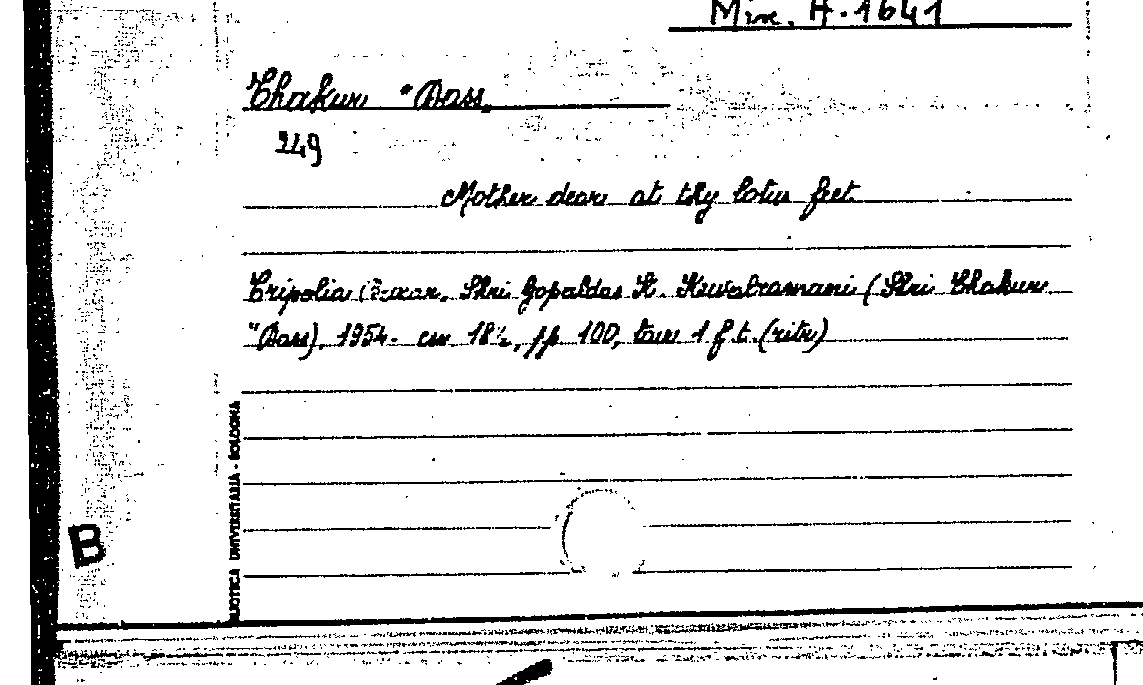 Misc. A.1641
Thakur "Dass„
249
Mother dear at thy lotus feet.
Tripolia Bazar, Shri Gopaldas H. Kuvatramani (Shri Thakur
"Dass), 1954. cm 18½, pp. 100, tav 1 f.t. (ritr)
BLIOTECA UNIVERSITARIA - BOLOGNA
B